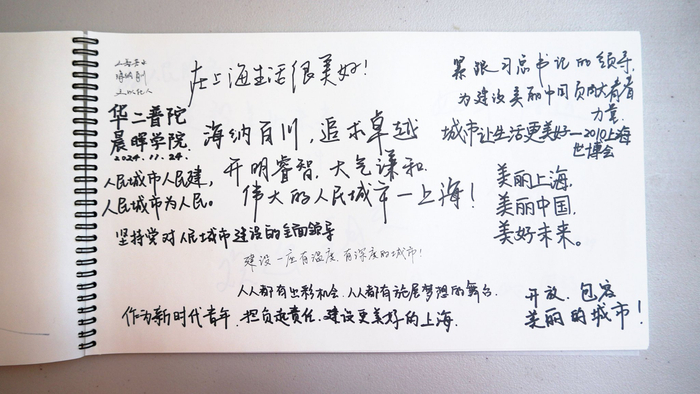 在上海生活很美好！
华二普陀
晨晖学院
2024.11.24.
海纳百川，追求卓越
开明睿智，大气谦和.
伟大的人民城市一上海！
人民城市人民建，
人民城市为人民。
坚持党对人民城市建设的全面领导
建设一座有温度、有深度的城市！
人人都有出彩机会、人人都有施展梦想的舞台.
作为新时代青年，担负起责任、建设更美好的上海.
紧跟习总书记的领导,
为建设美丽中国贡献青春
力量.
城市让生活更美好—2010上海
世博会
美丽上海,
美丽中国,
美好未来。
开放、包容
美丽的城市！